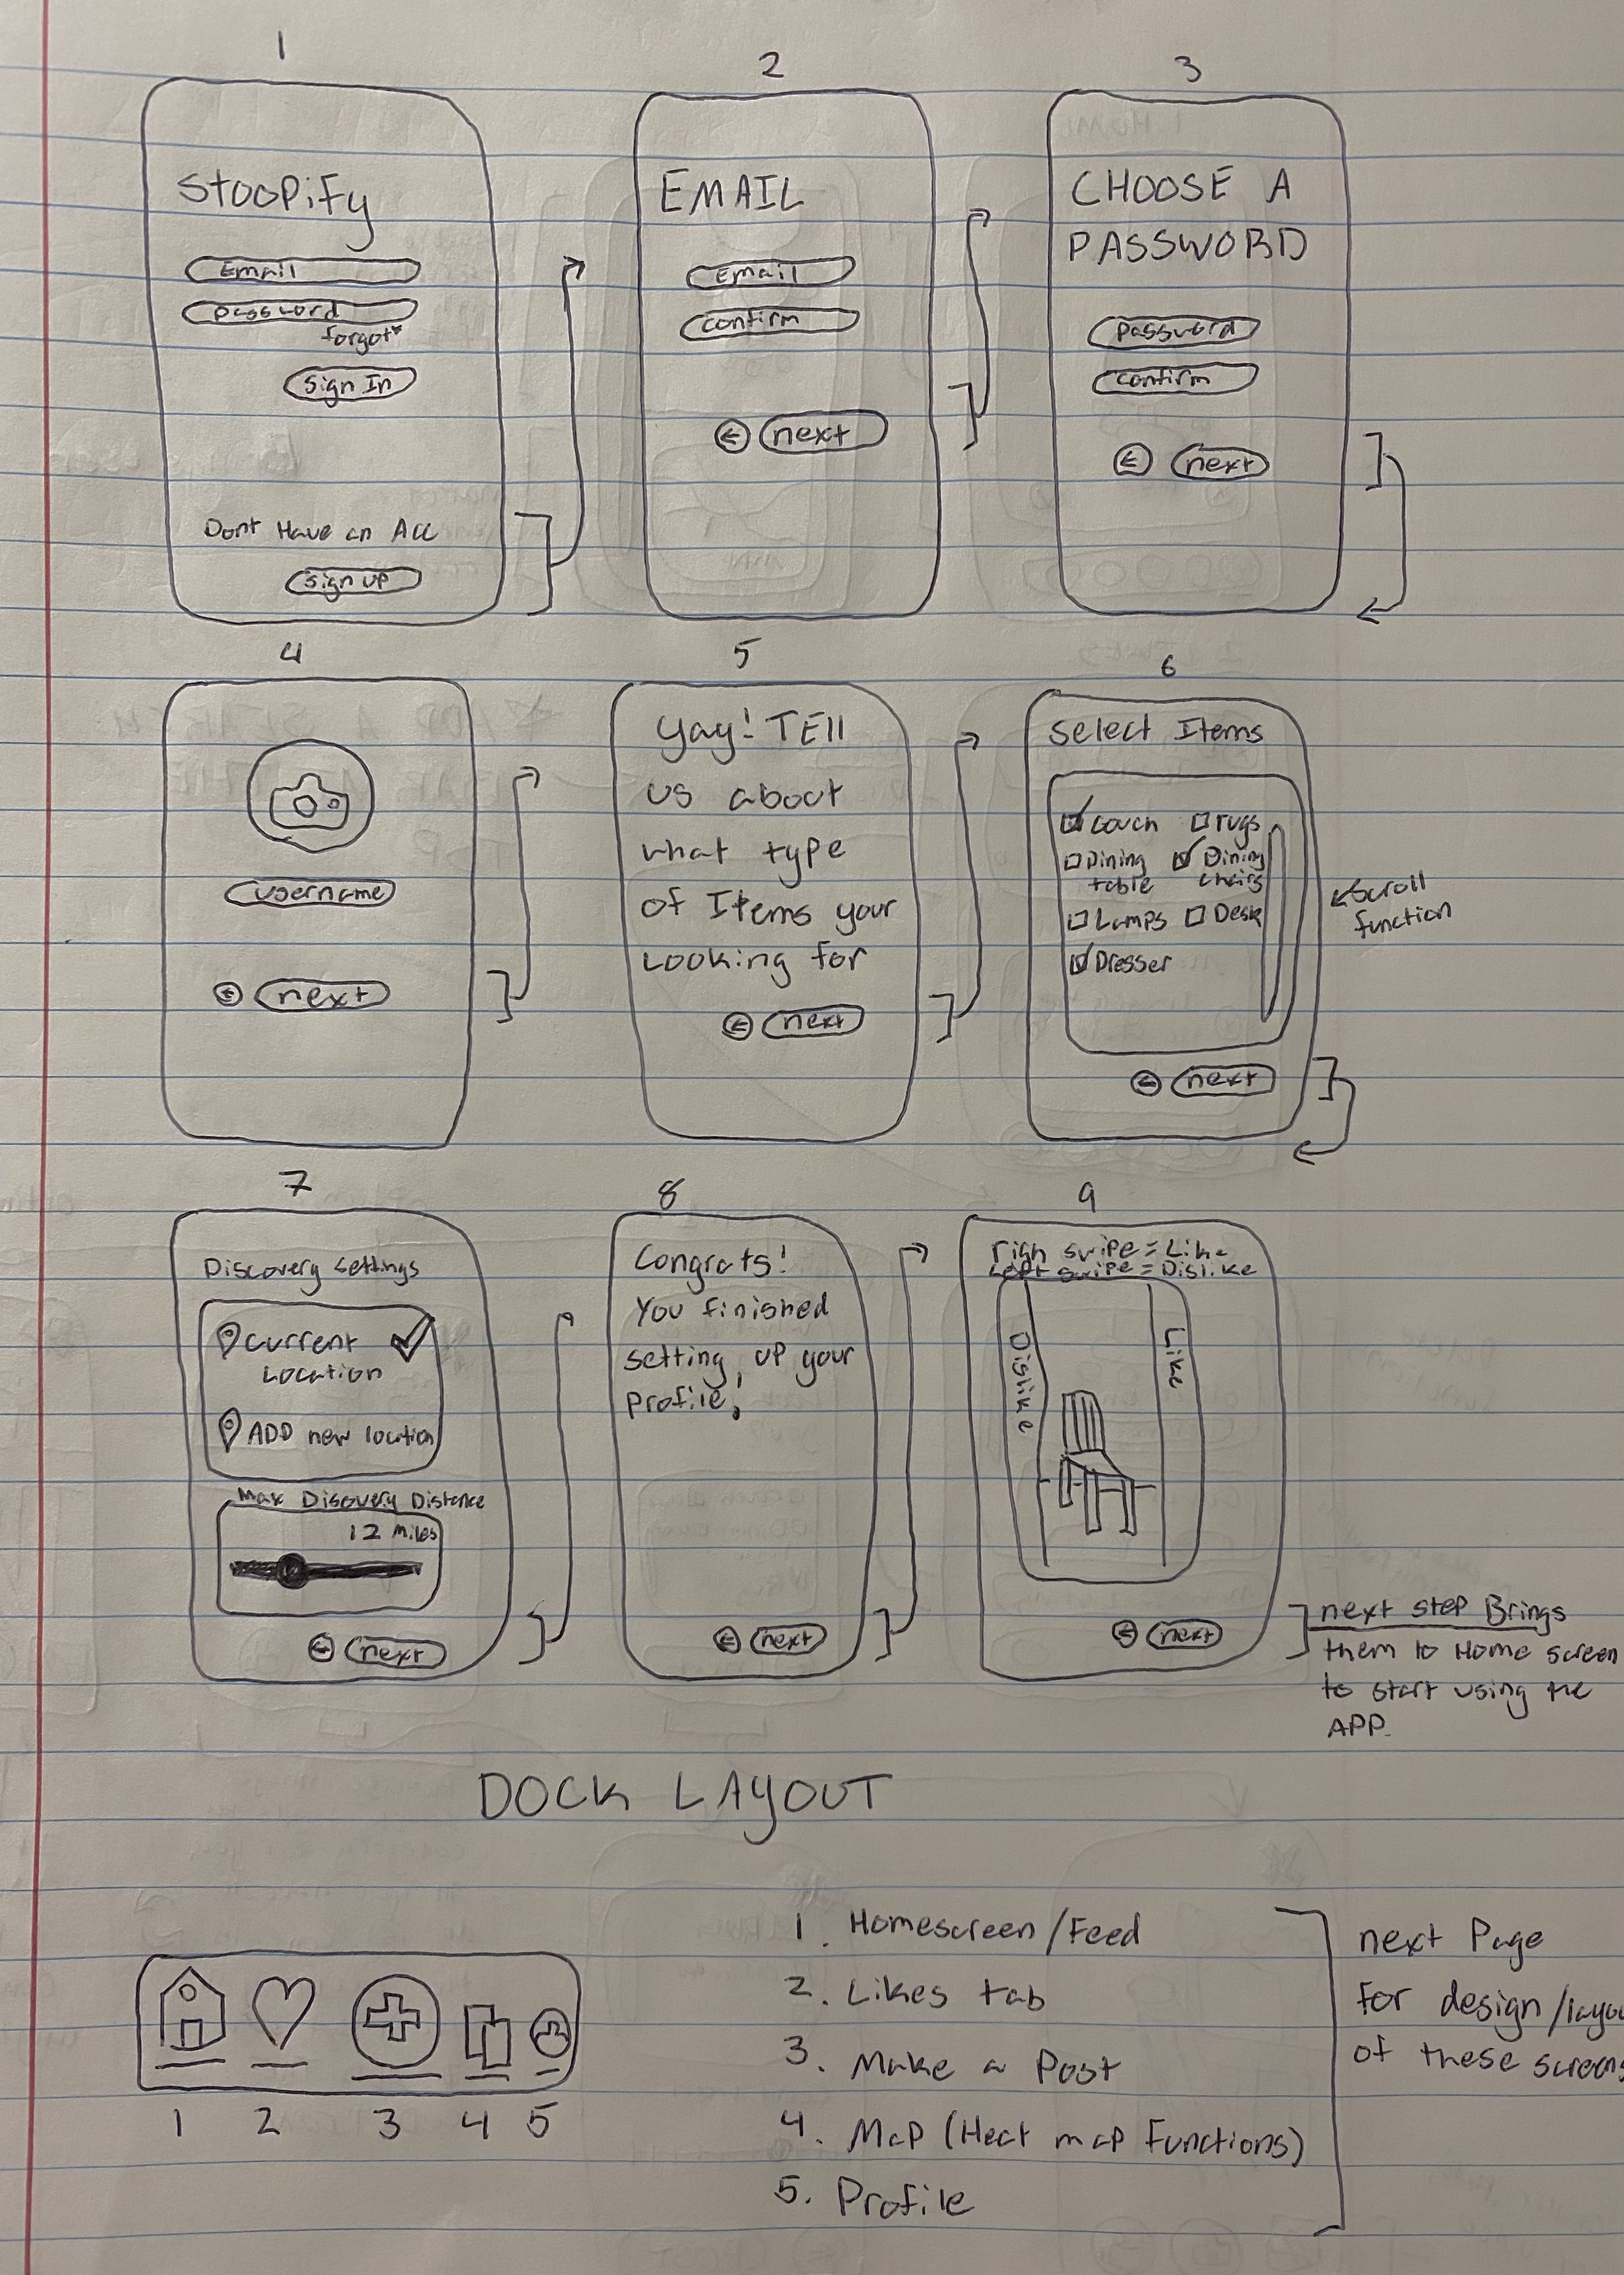 1
Stoopify
Email
password
forgot*
Sign In
Dont Have an Acc
sign up
2
EMAIL
Email
confirm
next
3
CHOOSE A
PASSWORD
password
confirm
next
4
username
next
5
Yay! TEll
us about
what type
of Items your
Looking for
next
6
Select Items
couch rugs
Dining Dining
table chairs
Lamps Desk
Dresser
scroll
function
next
7
Discovery settings
current
Location
ADD new location
Max Discovery Distance
12 Miles
next
8
Congrats!
You finished
setting up your
profile!
next
9
righ swipe = Like
Left swipe = Dislike
Dislike
Like
next
next step Brings
them to Home screen
to start using the
APP.
DOCK LAYOUT
1 2 3 4 5
1. Homescreen/Feed
2. Likes tab
3. Make a Post
4. Map (Heat map Functions)
5. Profile
next Page
for design/layou
of these screens